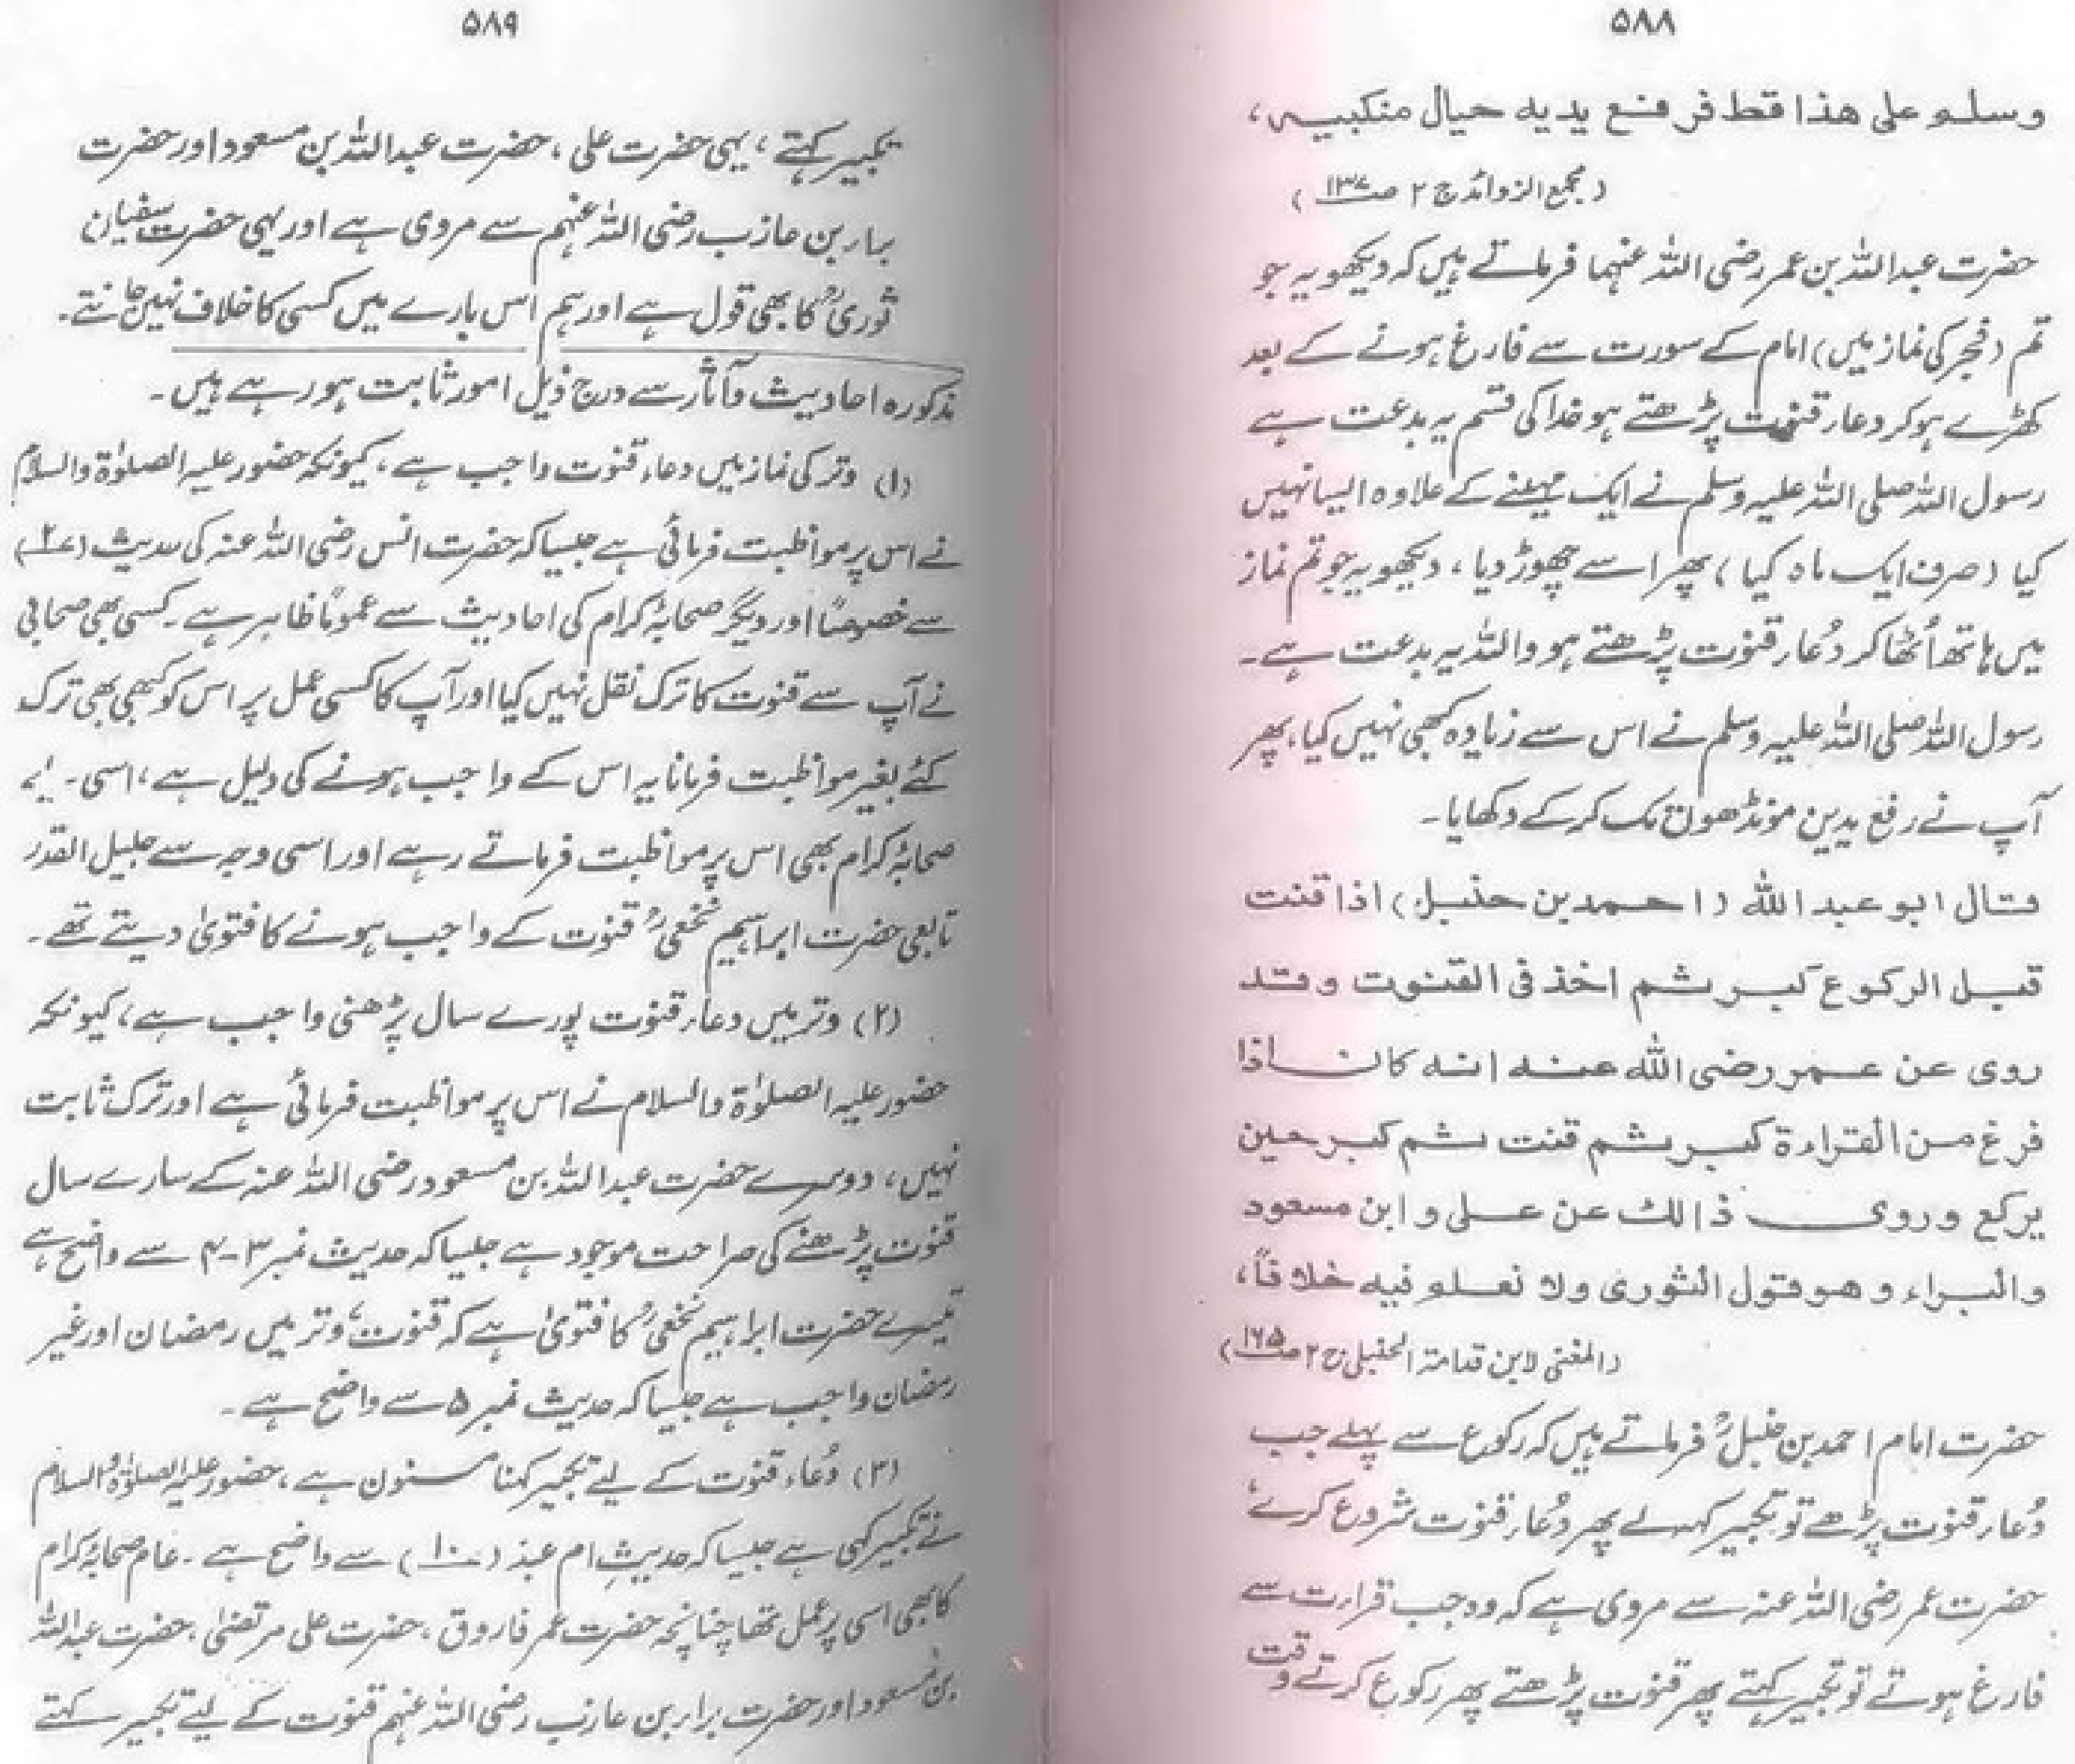 ۵۸۸
وسلم علی هذا قط فرفع یدیه حیال منکبیه،
(مجمع الزوائد ج ۲ ص۱۳۷)
حضرت عبداللہ بن عمر رضی اللہ عنہما فرماتے ہیں کہ دیکھو یہ جو
تم (فجر کی نماز میں) امام کے سورت سے فارغ ہونے کے بعد
کھڑے ہوکر دعاء قنوت پڑھتے ہو خدا کی قسم یہ بدعت ہے
رسول اللہ صلی اللہ علیہ وسلم نے ایک مہینے کے علاوہ ایسا نہیں
کیا (صرف ایک ماہ کیا) پھر اسے چھوڑ دیا، دیکھو یہ جو تم نماز
میں ہاتھ اُٹھا کر دُعاء قنوت پڑھتے ہو واللہ یہ بدعت ہے۔
رسول اللہ صلی اللہ علیہ وسلم نے اس سے زیادہ کبھی نہیں کیا، پھر
آپ نے رفع یدین مونڈھوں تک کر کے دکھایا۔
قال ابو عبد الله (احمد بن حنبل) اذا قنت
قبل الرکوع کبر ثم اخذ فی القنوت وقد
روی عن عمر رضی الله عنه انه کان اذا
فرغ من القراءة کبر ثم قنت ثم کبر حین
یرکع وروی ذالک عن علی وابن مسعود
والبراء وهو قول الثوری ولا نعلم فیه خلافاً،
(المغنی لابن قدامۃ الحنبلی ج ۲ ص۱۶۵)
حضرت امام احمد بن حنبلؒ فرماتے ہیں کہ رکوع سے پہلے جب
دُعاء قنوت پڑھے تو تکبیر کہہ لے پھر دُعاء قنوت شروع کرے،
حضرت عمر رضی اللہ عنہ سے مروی ہے کہ وہ جب قراءت سے
فارغ ہوتے تو تکبیر کہتے پھر قنوت پڑھتے پھر رکوع کرتے وقت
۵۸۹
تکبیر کہتے، یہی حضرت علی، حضرت عبداللہ بن مسعود اور حضرت
براء بن عازب رضی اللہ عنہم سے مروی ہے اور یہی حضرت سفیان
ثوریؒ کا بھی قول ہے اور ہم اس بارے میں کسی کا خلاف نہیں جانتے۔
مذکورہ احادیث وآثار سے درج ذیل امور ثابت ہو رہے ہیں۔
(۱) وتر کی نماز میں دعاء قنوت واجب ہے، کیونکہ حضور علیہ الصلوٰۃ والسلام
نے اس پر مواظبت فرمائی ہے جیسا کہ حضرت انس رضی اللہ عنہ کی حدیث (۲)
سے خصوصاً اور دیگر صحابۂ کرام کی احادیث سے عموماً ظاہر ہے۔ کسی بھی صحابی
نے آپ سے قنوت کا ترک نقل نہیں کیا اور آپ کا کسی عمل پر اس کو کبھی بھی ترک
کئے بغیر مواظبت فرمانا یہ اس کے واجب ہونے کی دلیل ہے، اسی
صحابۂ کرام بھی اس پر مواظبت فرماتے رہے اور اسی وجہ سے جلیل القدر
تابعی حضرت ابراہیم نخعیؒ قنوت کے واجب ہونے کا فتویٰ دیتے تھے۔
(۲) وتر میں دعاء قنوت پورے سال پڑھنی واجب ہے، کیونکہ
حضور علیہ الصلوٰۃ والسلام نے اس پر مواظبت فرمائی ہے اور ترک ثابت
نہیں، دوسرے حضرت عبداللہ بن مسعود رضی اللہ عنہ کے سارے سال
قنوت پڑھنے کی صراحت موجود ہے جیسا کہ حدیث نمبر ۳-۴ سے واضح ہے
تیسرے حضرت ابراہیم نخعیؒ کا فتویٰ ہے کہ قنوت، وتر میں رمضان اور غیر
رمضان واجب ہے جیسا کہ حدیث نمبر ۵ سے واضح ہے۔
(۳) دُعاء قنوت کے لیے تکبیر کہنا مسنون ہے، حضور علیہ الصلوٰۃ والسلام
نے تکبیر کہی ہے جیسا کہ حدیثِ ام عبد (۱۰) سے واضح ہے۔ عام صحابۂ کرام
کا بھی اسی پر عمل تھا چنانچہ حضرت عمر فاروق، حضرت علی مرتضیٰ، حضرت عبداللہ
بن مسعود اور حضرت براء بن عازب رضی اللہ عنہم قنوت کے لیے تکبیر کہتے